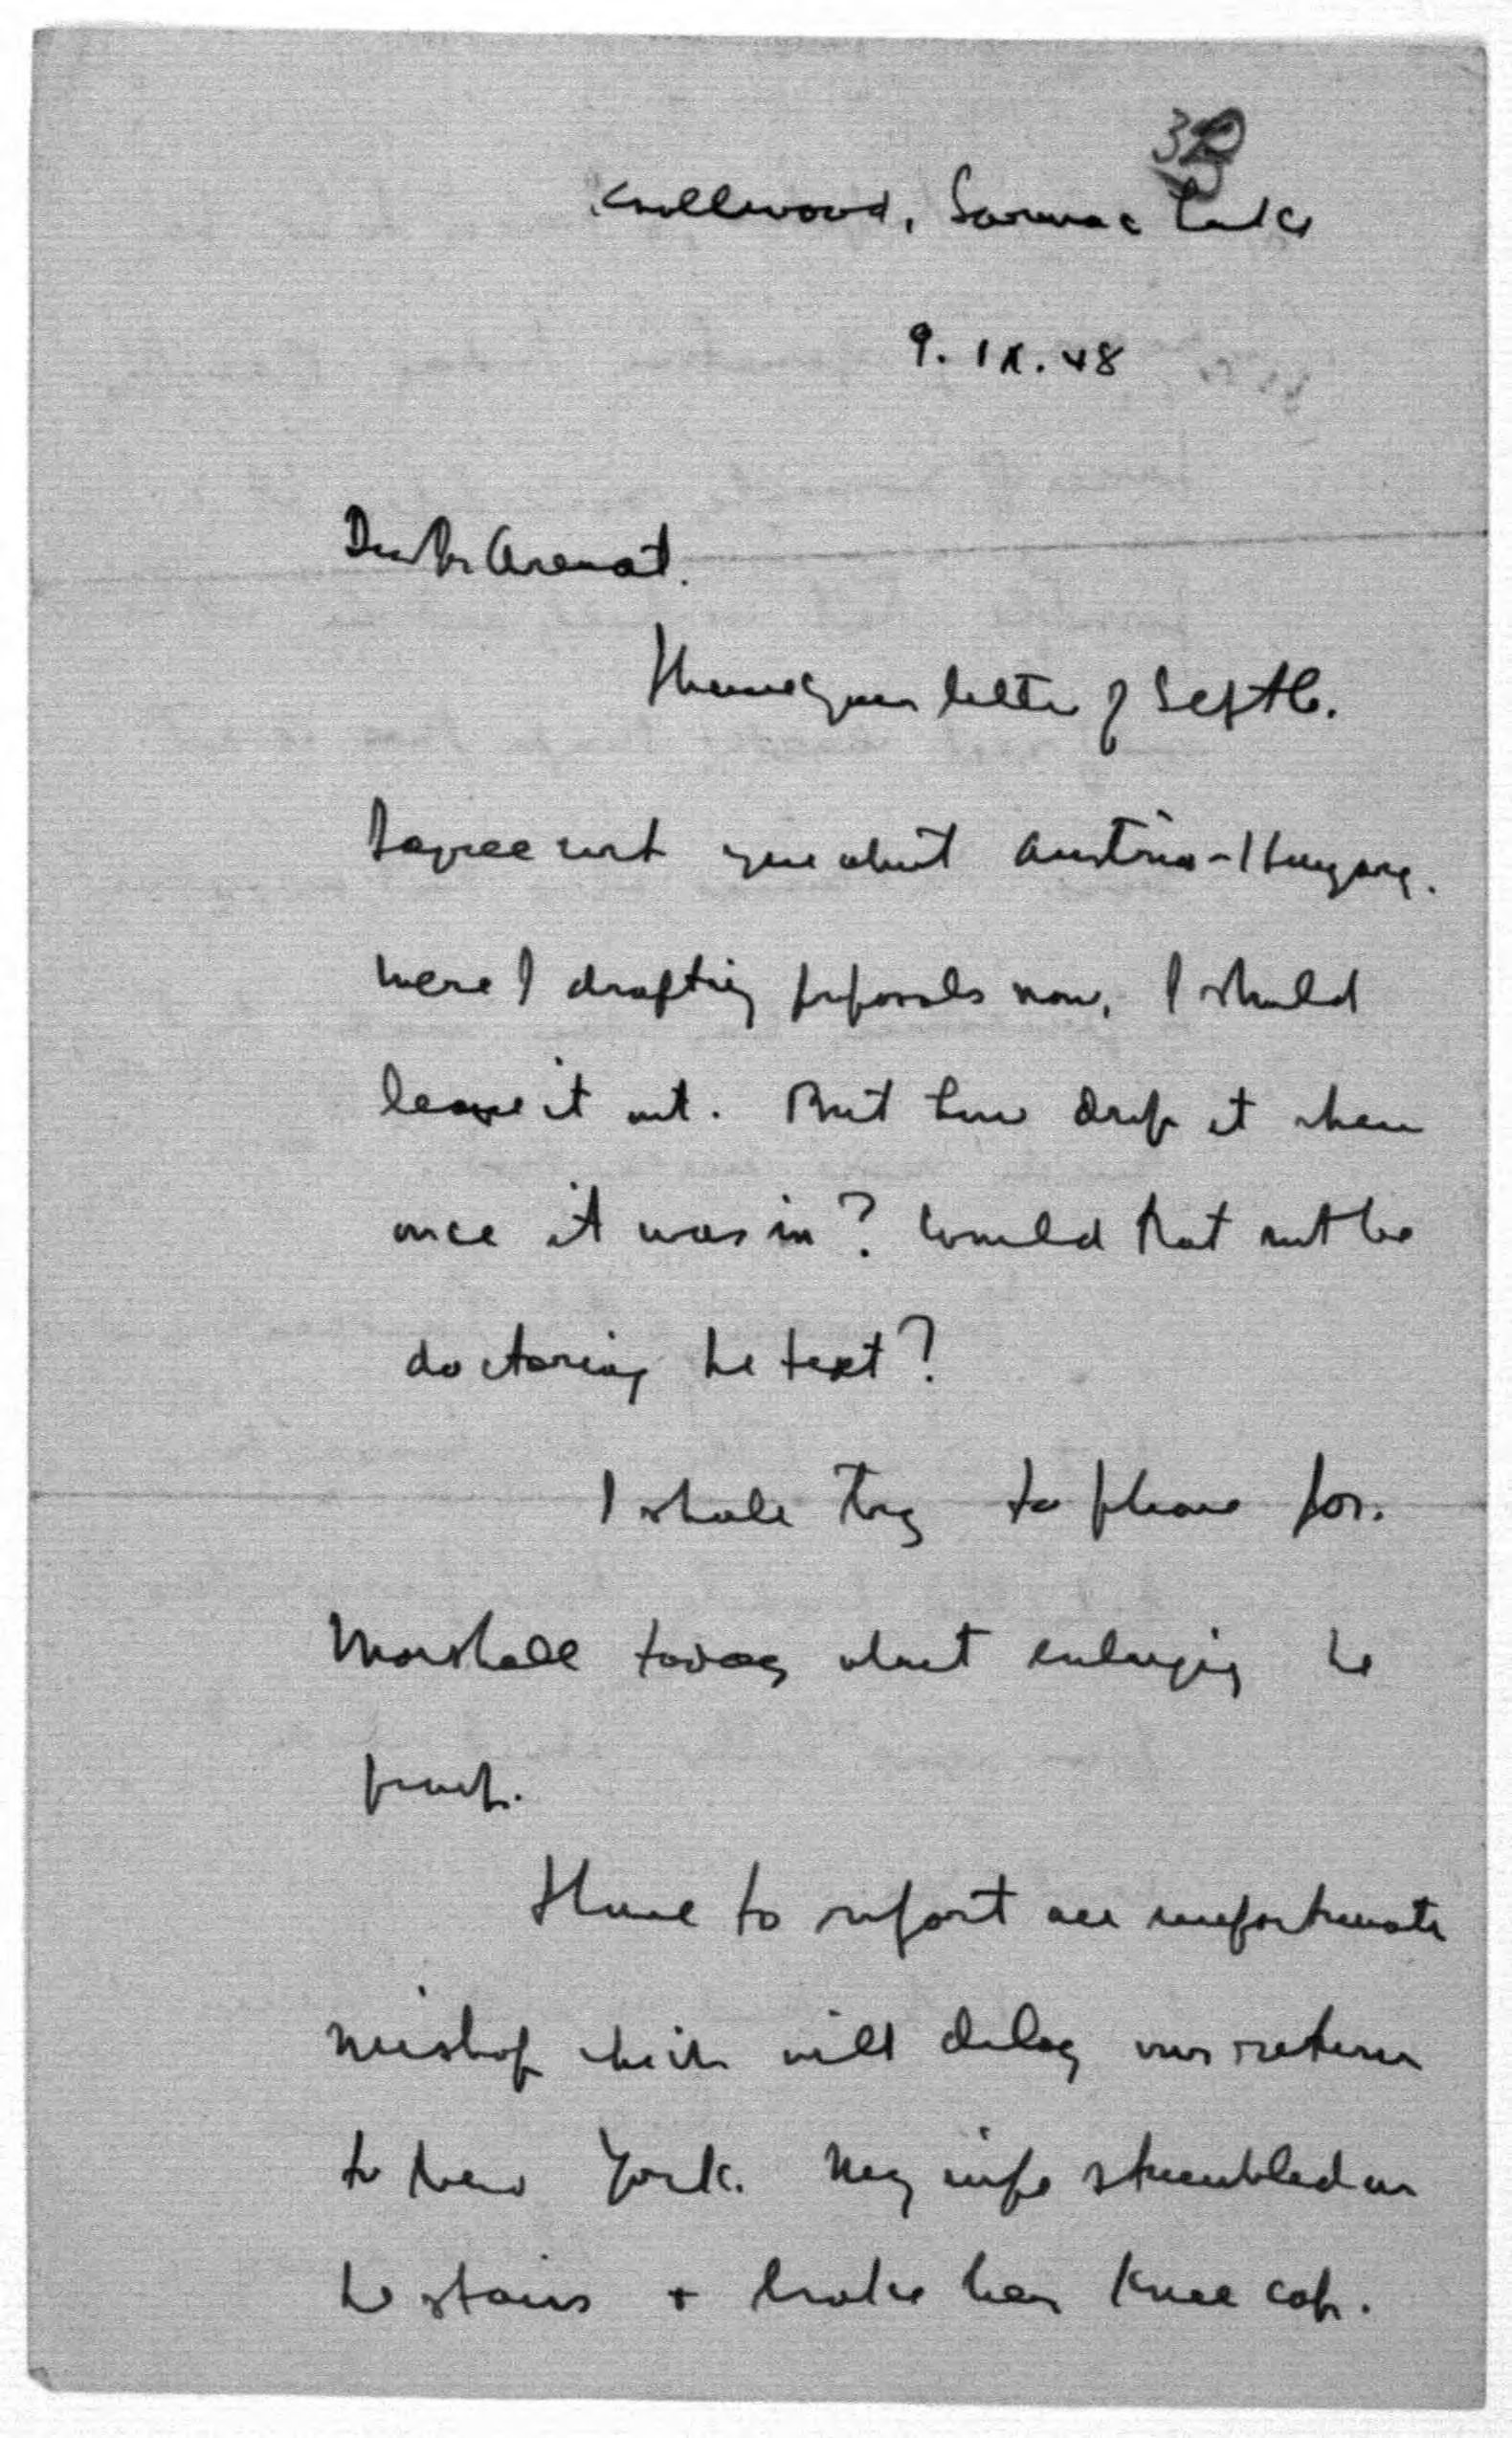 Knollwood, Saranac Lake
9. IX. 48
Dear Dr Arendt.
Thank you letter of Sept 6.
I agree with you about Austria-Hungary.
Were I drafting proposals now, I should
leave it out. But how drop it when
once it was in? Would that not be
doctoring the text?
I shall try to phone for.
Marshall today about enlarging the
group.
I have to report an unfortunate
mishap which will delay our return
to New York. My wife stumbled on
the stairs + broke her knee cap.